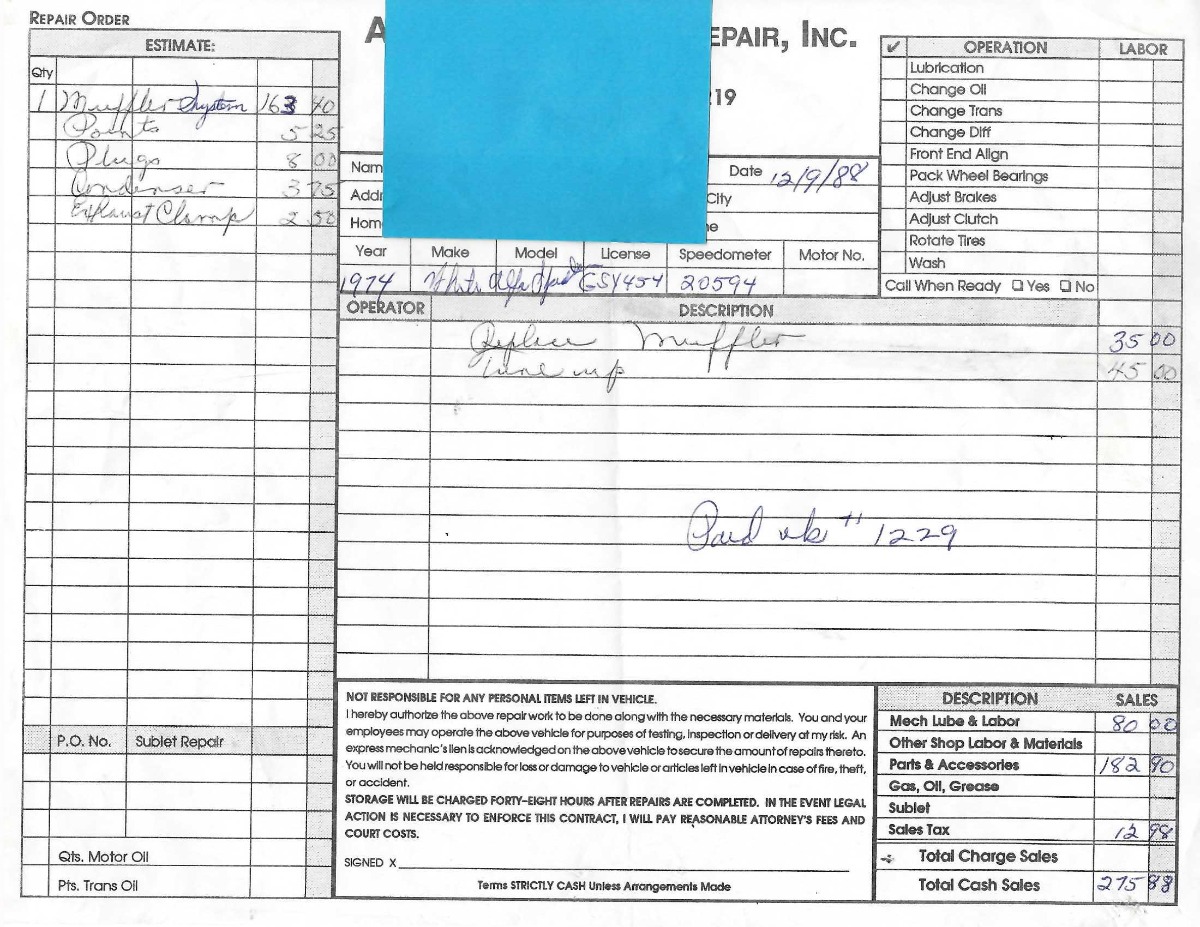 REPAIR ORDER
A
EPAIR, INC.
19
ESTIMATE:
Qty
1 Muffler System 163 40
Points 5 25
Plugs 8 00
Condenser 3 75
Exhaust Clamp 2 50
P.O. No. Sublet Repair
Qts. Motor Oil
Pts. Trans Oil
Nam Date 12/9/88
Addr City
Hom e
Year Make Model License Speedometer Motor No.
1974 White Alfa 454 20594
✓ OPERATION LABOR
Lubrication
Change Oil
Change Trans
Change Diff
Front End Align
Pack Wheel Bearings
Adjust Brakes
Adjust Clutch
Rotate Tires
Wash
Call When Ready ☐ Yes ☐ No
OPERATOR DESCRIPTION
Replace Muffler 35 00
Tune up 45 00
Paid ck # 1229
NOT RESPONSIBLE FOR ANY PERSONAL ITEMS LEFT IN VEHICLE.
I hereby authorize the above repair work to be done along with the necessary materials. You and your
employees may operate the above vehicle for purposes of testing, inspection or delivery at my risk. An
express mechanic's lien is acknowledged on the above vehicle to secure the amount of repairs thereto.
You will not be held responsible for loss or damage to vehicle or articles left in vehicle in case of fire, theft,
or accident.
STORAGE WILL BE CHARGED FORTY-EIGHT HOURS AFTER REPAIRS ARE COMPLETED. IN THE EVENT LEGAL
ACTION IS NECESSARY TO ENFORCE THIS CONTRACT, I WILL PAY REASONABLE ATTORNEY'S FEES AND
COURT COSTS.
SIGNED X
Terms STRICTLY CASH Unless Arrangements Made
DESCRIPTION SALES
Mech Lube & Labor 80 00
Other Shop Labor & Materials
Parts & Accessories 182 90
Gas, Oil, Grease
Sublet
Sales Tax 12 98
Total Charge Sales
Total Cash Sales 275 88